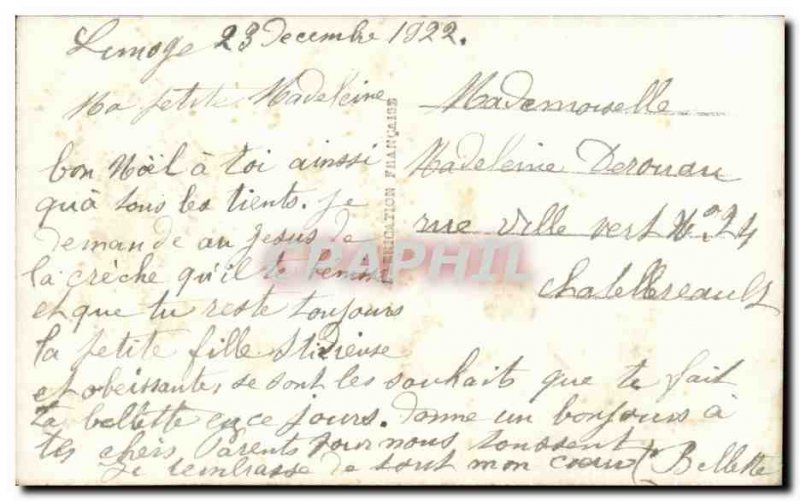 Limoge 23 decembre 1922.
Ma petite Madeleine
bon Noël à toi ainsi
qu'à tous les tients. Je
demande au Jesus de
la crèche qu'il te
et que tu reste toujours
la petite fille Studieuse
et obeissantes, se sont les souhaits que te fait
ta bellette en ce jours. donne un bonjours à
tes chers Parents Pour nous
Je t'embrasse de tout mon coeur Bellette
FABRICATION FRANÇAISE
Mademoiselle
Madeleine Derouau
rue ville vert No 24
Chatellereault
CPAPHIL